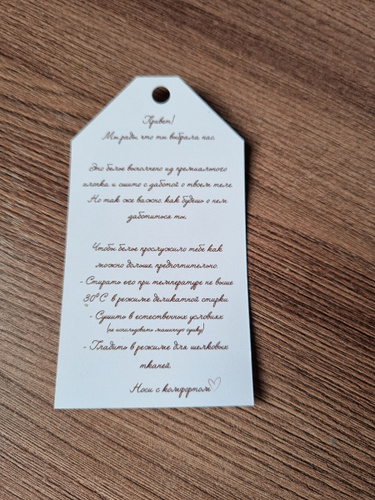 Привет!
Мы рады, что ты выбрала нас.
Это белье выполнено из премиального
хлопка и сшито с заботой о твоем теле.
Но так же важно, как будешь о нем
заботиться ты.
Чтобы белье прослужило тебе как
можно дольше, предпочтительно:
- Стирать его при температуре не выше
30°C в режиме деликатной стирки
- Сушить в естественных условиях
(не используйте машинную сушку)
- Гладить в режиме для шелковых
тканей.
Носи с комфортом